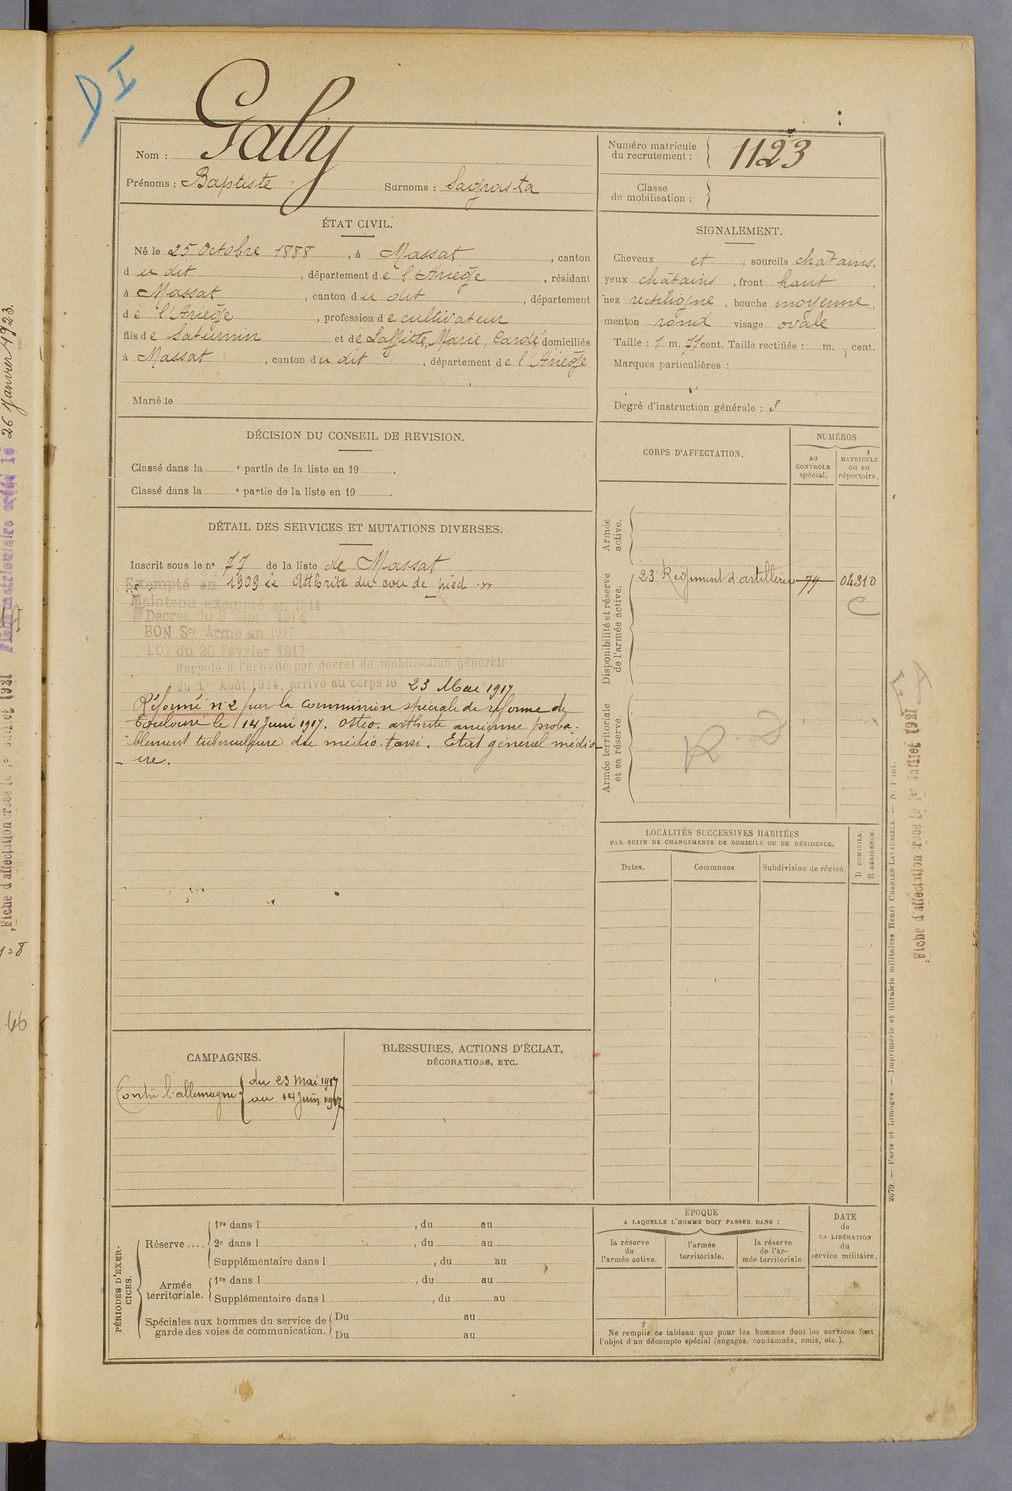 DI
Nom : Galy
Prénoms : Baptiste Surnoms :
Numéro matricule du recrutement : 1123
Classe de mobilisation :
ÉTAT CIVIL.
Né le 25 Octobre 1888, à Massat, canton
du dit, département de l'Ariège, résidant
à Massat, canton du dit, département
de l'Ariège, profession de cultivateur
fils de Saturnin et de Laffitte, Marie, domiciliés
à Massat, canton du dit, département de l'Ariège
Marié le
SIGNALEMENT.
Cheveux et, sourcils châtains,
yeux châtains, front haut,
nez rectiligne, bouche moyenne,
menton rond visage ovale
Taille : 1 m. 71 cent. Taille rectifiée : m. , cent.
Marques particulières :
Degré d'instruction générale : 3
DÉCISION DU CONSEIL DE REVISION.
Classé dans la e partie de la liste en 19 .
Classé dans la e partie de la liste en 19 .
DÉTAIL DES SERVICES ET MUTATIONS DIVERSES.
Inscrit sous le no 77 de la liste de Massat
Exempté en 1909 Arthrite du cou de pied
Maintenu exempté en 1914
Décret du 9 Sept 1914
BON Sce Armé en 1917
LOI du 20 Février 1917
Rappelé à l'activité par décret de mobilisation générale
du 1er Août 1914, arrivé au corps le 23 Mai 1917
Réformé no 2 par la commission spéciale de réforme de
Toulouse le 14 Juin 1917. Ostéo-arthrite ancienne proba-
blement tuberculeuse du médio-tarse. Etat général médio-
cre.
CORPS D'AFFECTATION.
NUMÉROS
au CONTROLE spécial.
MATRICULE ou au répertoire.
Armée active.
Disponibilité et réserve de l'armée active.
23e Régiment d'artillerie 79 04310
C
Armée territoriale et sa réserve.
R 2
LOCALITÉS SUCCESSIVES HABITÉES
PAR SUITE DE CHANGEMENTS DE DOMICILE OU DE RÉSIDENCE.
Dates. Communes Subdivision de région
D. DOMICILE.
R. RÉSIDENCE.
CAMPAGNES.
Contre l'allemagne du 23 Mai 1917
au 14 Juin 1917
BLESSURES, ACTIONS D'ÉCLAT,
DÉCORATIONS, ETC.
PÉRIODES D'EXERCICES.
Réserve .... 1re dans l , du au
2e dans l , du au
Supplémentaire dans l , du au
Armée territoriale. 1re dans l , du au
Supplémentaire dans l , du au
Spéciales aux hommes du service de garde des voies de communication. Du au
Du au
ÉPOQUE
A LAQUELLE L'HOMME DOIT PASSER DANS :
la réserve de l'armée active.
l'armée territoriale.
la réserve de l'armée territoriale
DATE de LA LIBÉRATION du service militaire.
Ne remplir ce tableau que pour les hommes dont les services font
l'objet d'un décompte spécial (engagés, condamnés, omis, etc.).
2679. — Paris et Limoges. — Imprimerie et librairie militaires Henri CHARLES-LAVAUZELLE.
Fiche d'affectation créée le 1er Juillet 1921
26 Janvier 1923.